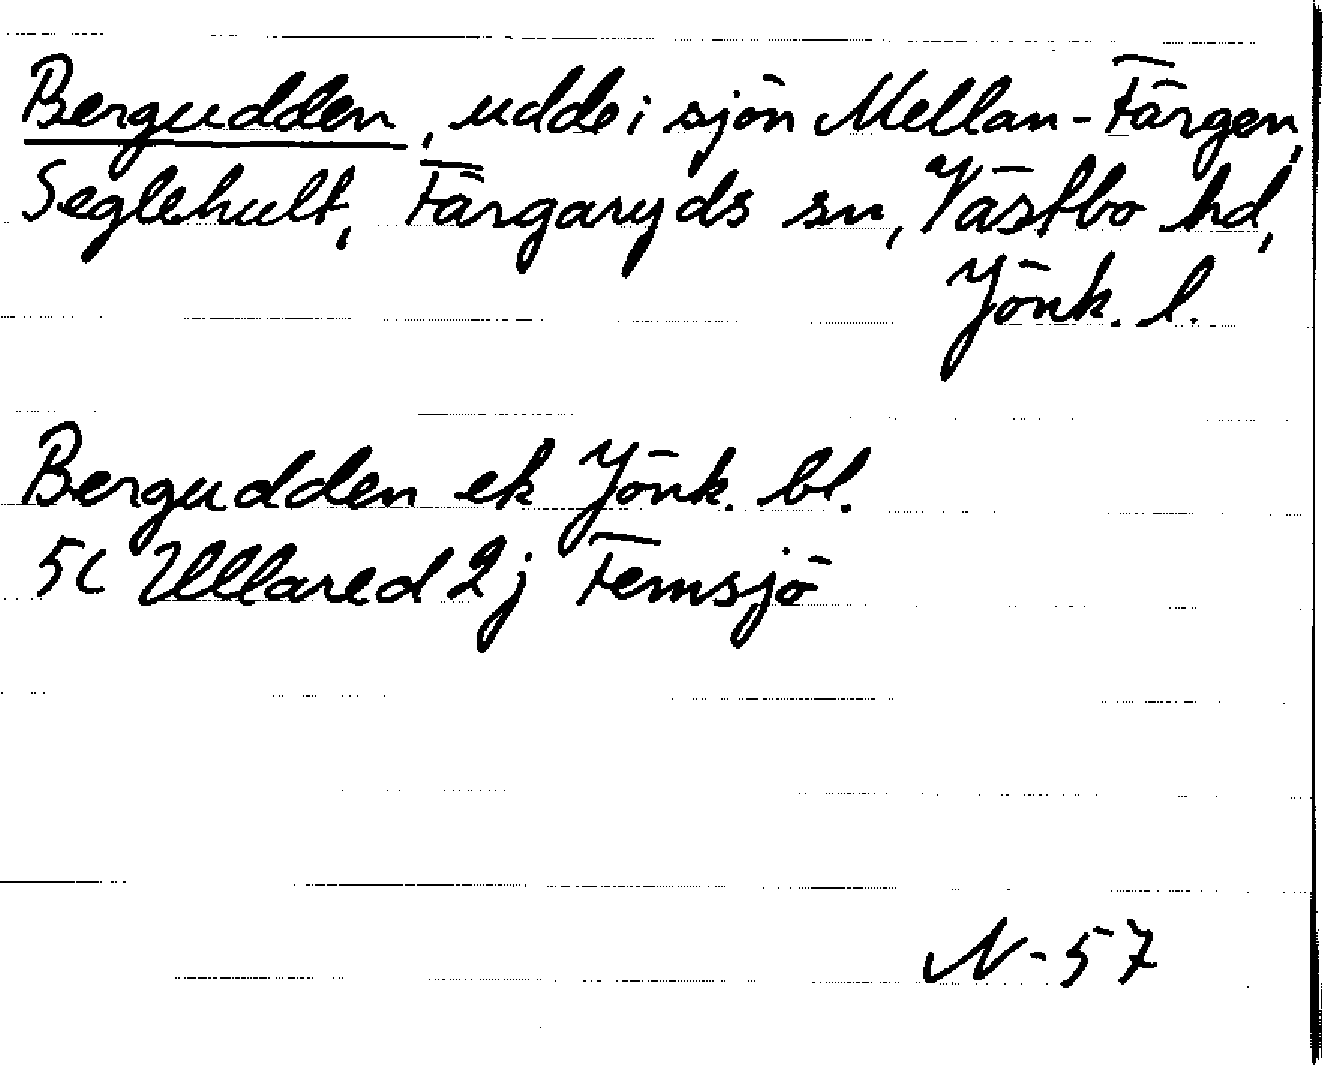 Bergudden, udde i sjön Mellan-Färgen,
Seglehult, Färgaryds sn, Västbo hd,
Jönk. l.
Bergudden ek Jönk. bl.
5C Ullared 2j Femsjö
N-57